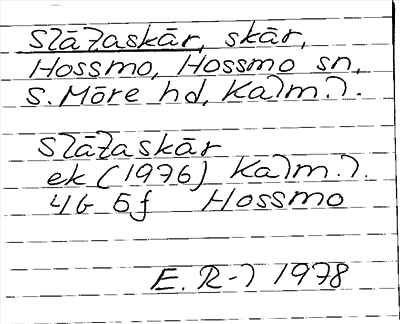 Slätaskär, skär,
Hossmo, Hossmo sn,
S. Möre hd, Kalm. l.
Slätaskär
ek (1976) Kalm. l.
4G 5f Hossmo
E. R-l 1978